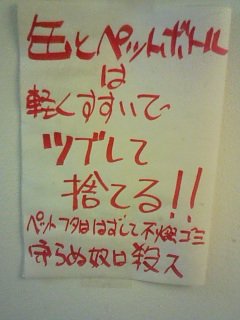 缶とペットボトル
は
軽くすすいで
ツブして
捨てる!!
ペットフタははずして不燃ゴミ
守らぬ奴ハ殺ス